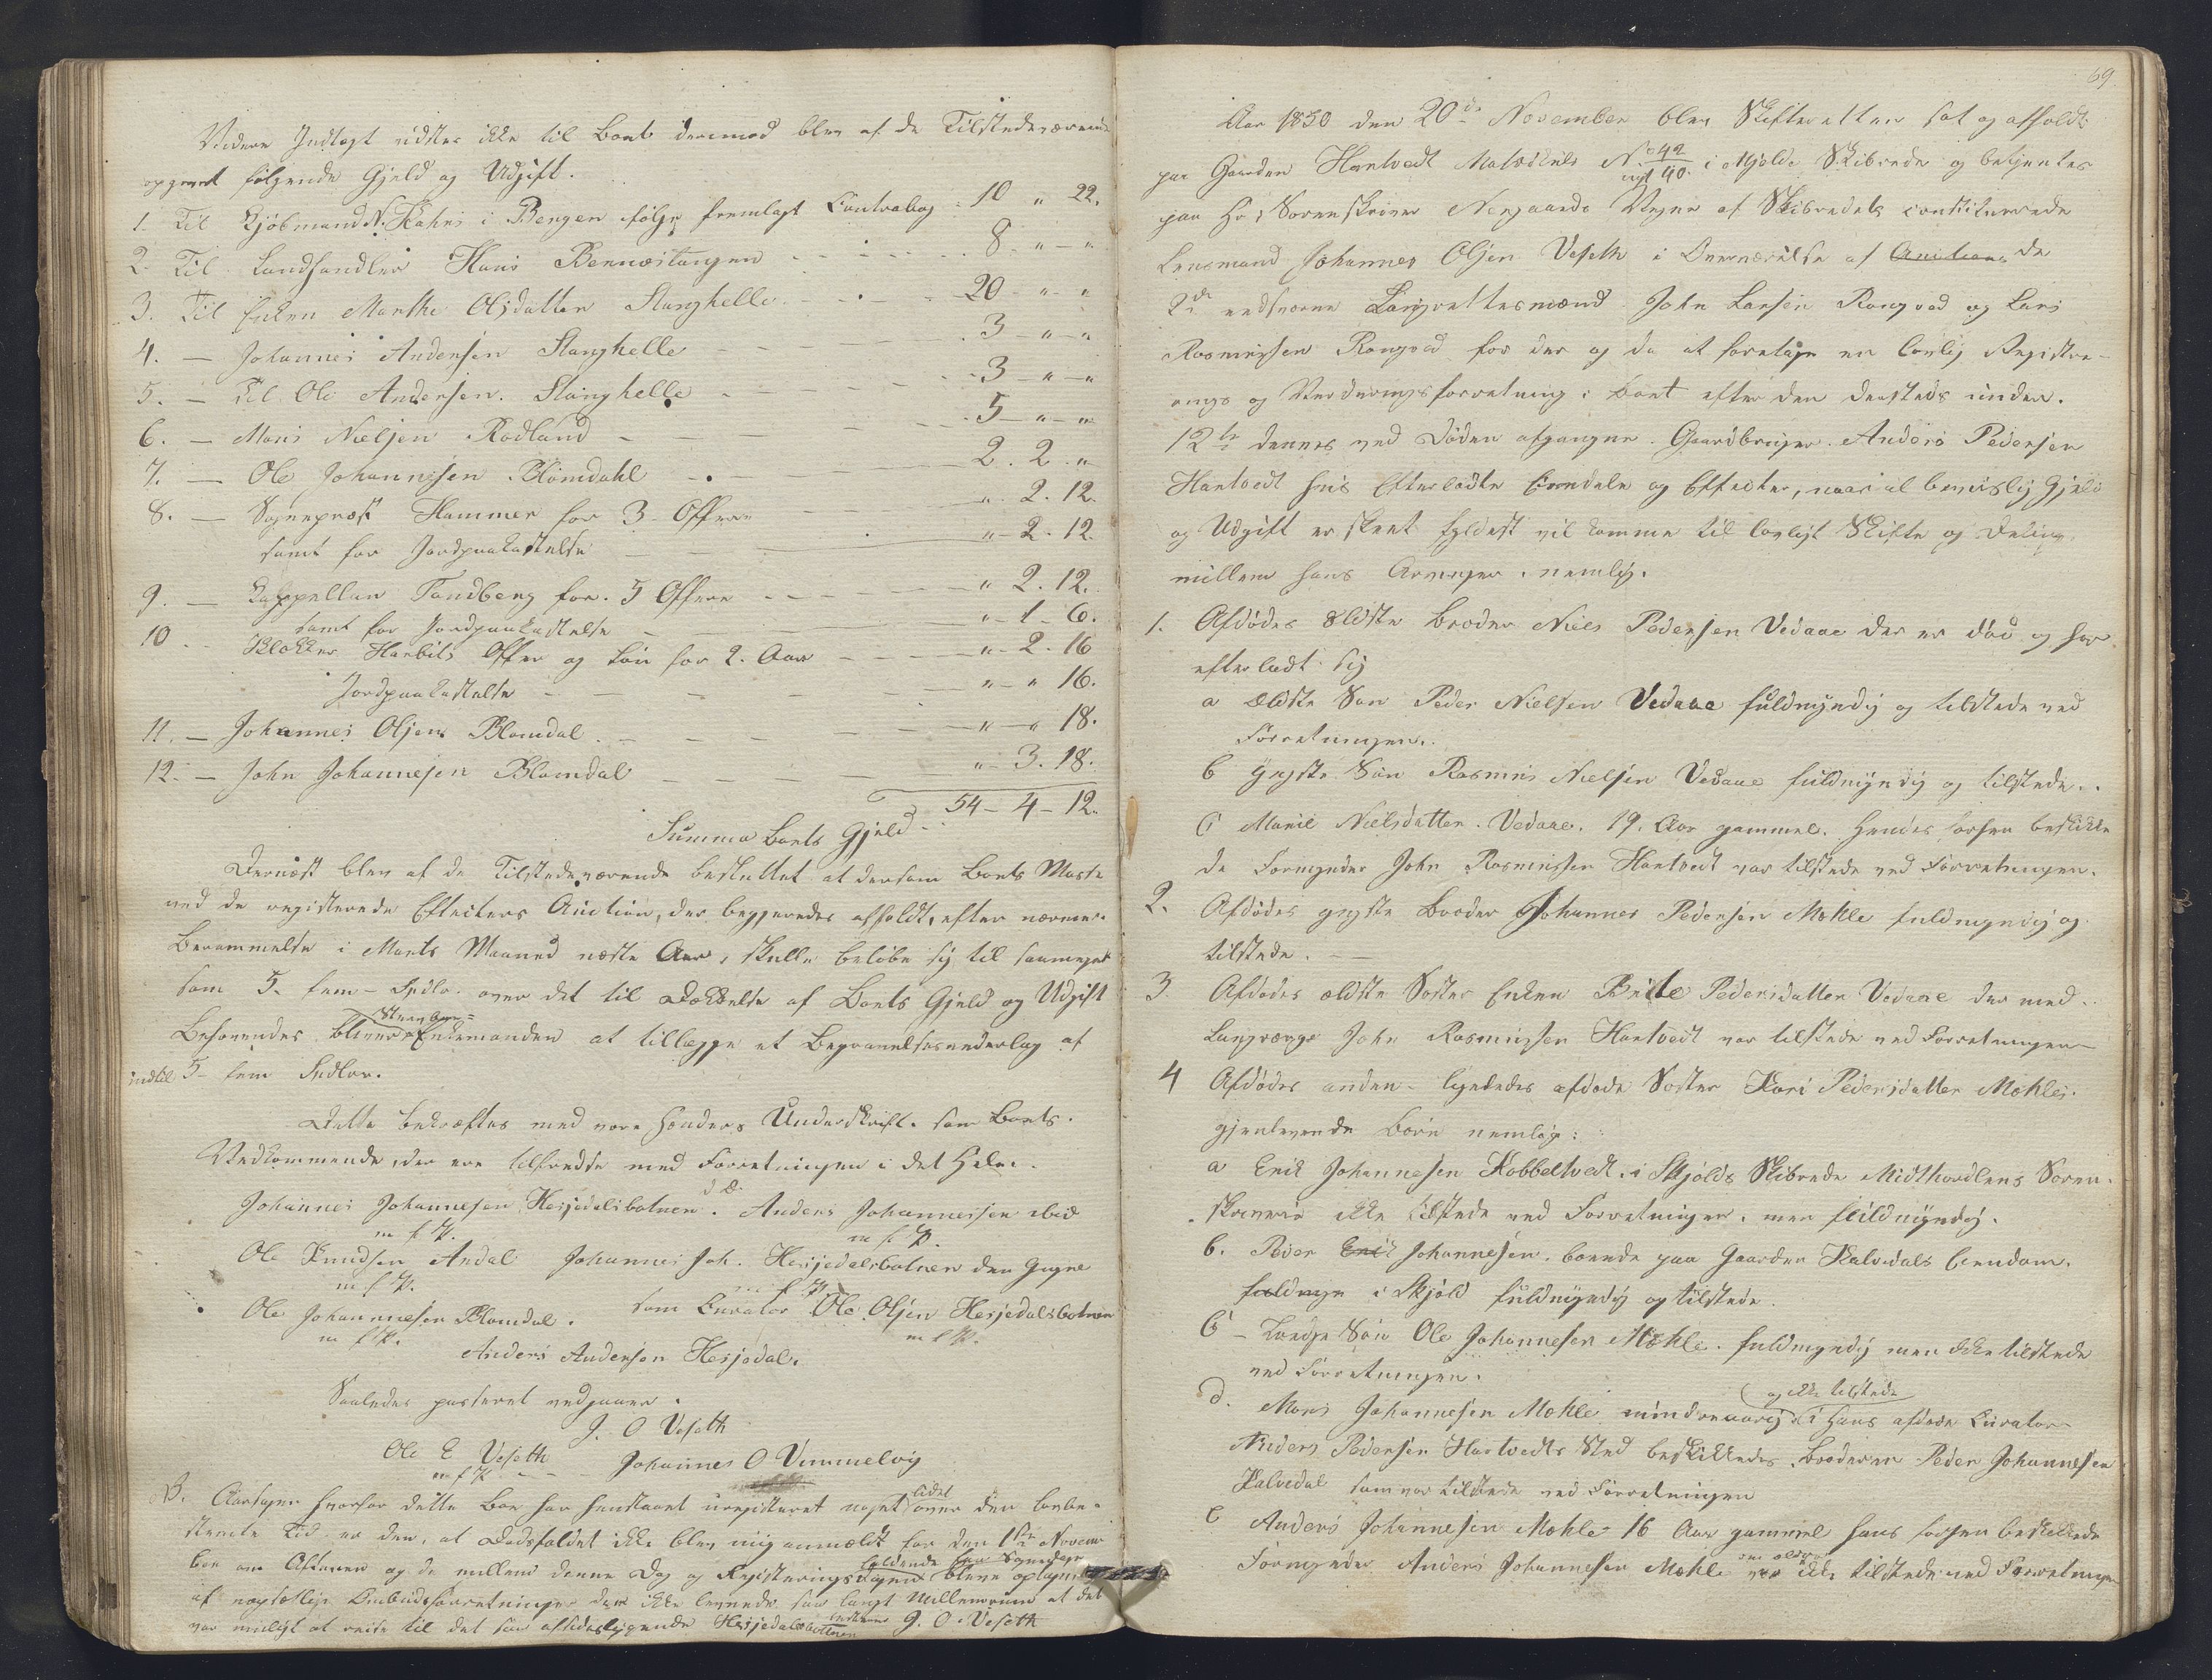 Videre Indtægt vidstes ikke til Boets derimod blev af de Tilstedeværende
opgivet følgende Gjeld og Udgift.
1. Til Kjøbmand N. Kahrs i Bergen følge fremlagt Contrabog 10 " 22.
2. Til Landhandler Hans Bennæstangen 8 - " - "
3. Til Enken Marthe Olsdatter Stanghelle 20 - " - "
4. — Johannes Andersen Stanghelle 3 - " - "
5. — Til Ole Andersen Stanghelle 3 - " - "
6. — Mons Nielsen Rødland 5 - " - "
7. — Ole Johannesen Blomdahl 2. 2. "
8. — Sognepræst Hammer for 3 Offere " 2. 12.
samt for Jordpaakastelse " - 2. 12.
9. — Cappellan Tandberg for 5 Offere " 2. 12.
samt for Jordpaakastelse " - 1 - 6.
10 Klokker Harbitz Offer og Løn for 2. Aar " - 2 - 16
Jordpaakastelse " - " 16.
11. — Johannes Olsen Blomdal " - " 18.
12. — John Johannesen Blomdal " - 3. 18.
Summa Boets Gjeld 54 - 4 - 12.
Dernæst blev af de Tilstedeværende besluttet at dersom Boets Masse
ved de registerede Effecters Auction, der begjeredes afholdt, efter nærmere
Berammelse i Marts Maaned næste Aar, skulle beløbe sig til saameget
som 5. fem Spdlr. over det til Dækkelse af Boets Gjeld og Udgift
Behøvendes bliver Enkemanden at tillægge et Begravelsesvederlag af
indtil 5 - fem Spdlr.
Dette bekræftes med vore Hænders Underskrift som Boets
Vedkommende, der ere tilfredse med Forretningen i det Hele.
Johannes Johannesen Hesjedalsbotnen d. æ. Anders Johannessen ibid
m f P. m f P.
Ole Knudsen Andal Johannes Joh. Hesjedalsbotnen den Yngre
m f P. m f P.
Ole Johannesen Blomdal. som Curator Ole Olsen Hesjedalsbotnen
m f P. m f P.
Anders Andersen Hesjedal.
Saaledes passeret vedgaaer.
J. O Veseth
Ole E Veseth Johannes O Vimmelvig
m f P
N. B. Aarsagen hvorfor dette Boe har henstaaet uregisteret noget lidet over den lovbe-
stemte Tid er den, at Dødsfaldet ikke blev mig anmældt før den 1ste Novem
ber om Aftenen og de mellem denne Dag og Registeringsdagen bleve optagne
af nopsættlige Ombudsforretninger der ikke levnede saa langt Mellemrum at det
var muligt at reise til det saa afsidesliggende Hesjedalsbotnen J. O. Veseth
69
Aar 1850 den 20de November blev Skifteretten sat og afholdt
paa Gaarden Hantvedt Matrikuls No 42 nyt 40. i Mjelde Skibrede og betjentes
paa Hr. Sorenskriver Nergaards Vegne af Skibredets constituerede
Lensmand Johannes Olsen Veseth i Overværelse af Auction de
2de eedsvorne Laugrettesmænd John Larsen Rongved og Lars
Rasmussen Rongved for der og da at foretage en lovlig Registre-
rings og Vurderingsforretning i Boet efter den dersteds under
12te dennes ved Døden afgangne Gaardbruger Anders Pedersen
Hantvedt hvis Efterladte Eiendele og Effecter, naar al bevislig Gjeld
og Udgift er skeet fyldest vil komme til lovligt Skifte og Deling
mellem hans Arvinger, nemlig.
1. Afdødes ældste Broder Niels Pedersen Vedaae der er død og har
efterladt sig
a ældste Søn Peder Nielsen Vedaae fuldmyndig og tilstede ved
Forretningen.
b Yngste Søn Rasmus Nielsen Vedaae fuldmyndig og tilstede.
C Marie Nielsdatter Vedaae. 19. Aar gammel. Hendes forhen beskikke
de Formynder John Rasmussen Hantvedt var tilstede ved Forretningen.
2. Afdødes yngste Broder Johannes Pedersen Mæhle fuldmyndig og
tilstede.
3. Afdødes ældste Søster Enken Brite Pedersdatter Vedaae der med
Laugværge John Rasmussen Hantvedt var tilstede ved Forretningen
4 Afdødes anden ligeledes afdøde Søster Kari Pedersdatter Mæhles
gjenlevende Børn nemlig:
a Erik Johannesen Kobbeltvedt i Skjolds Skibrede Midthordlens Soren-
skriverie ikke tilstede ved Forretningen, men fuldmyndig.
b. Peder Erik Johannesen boende paa Gaarden Kalvedals Eiendom.
fuldmyn i Skjold fuldmyndig og tilstede.
C Tredje Søn Ole Johannesen Mæhle. fuldmyndig men ikke tilstede
ved Forretningen.
d. Mons Johannesen Mæhle mindreaarig og ikke tilstede i Hans afdøde Curator
Anders Pedersen Hantvedts Sted beskikkedes Broderen Peder Johannesen
Kalvedal som var tilstede ved Forretningen
e Anders Johannesen Mæhle 16 Aar gammel hans forhen beskikkede
Formynder Anders Johannesen Mæhle var ikke tilstede ved Forretningen